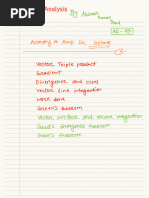 Analysis
By Abinash
Kumar
AE - 49
According to Amiya Sir lecture
Vector Triple product
Gradient
Divergence and curl
Vector line integration
work done
Green's theorem
Vector surface and volume integration
Gauss's divergence theorem
Stoke's theorem